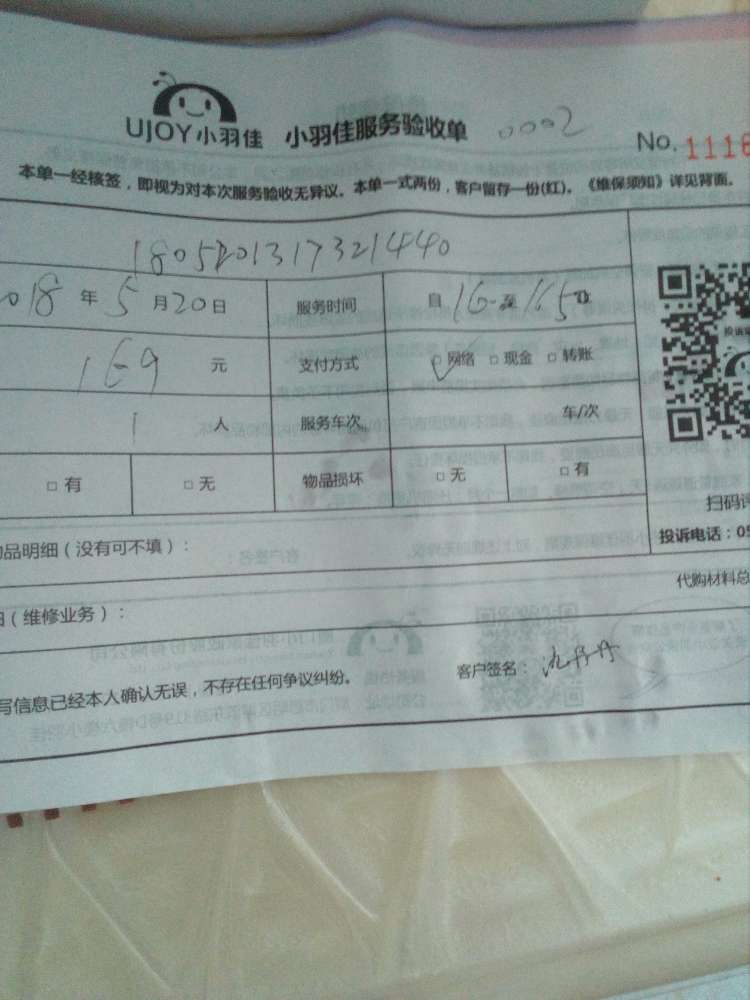 UJOY小羽佳 小羽佳服务验收单 0002
No. 1116
本单一经核签，即视为对本次服务验收无异议。本单一式两份，客户留存一份(红)。《维保须知》详见背面。
180520131732144​0
018 年 5 月 20 日 服务时间 自 16 至
169 元 支付方式 □网络 □现金 □转账
1 人 服务车次 车/次
□有 □无 物品损坏 □无 □有
扫码评
品明细（没有可不填）： 投诉电话：05
（维修业务）： 代购材料总
写信息已经本人确认无误，不存在任何争议纠纷。 客户签名：